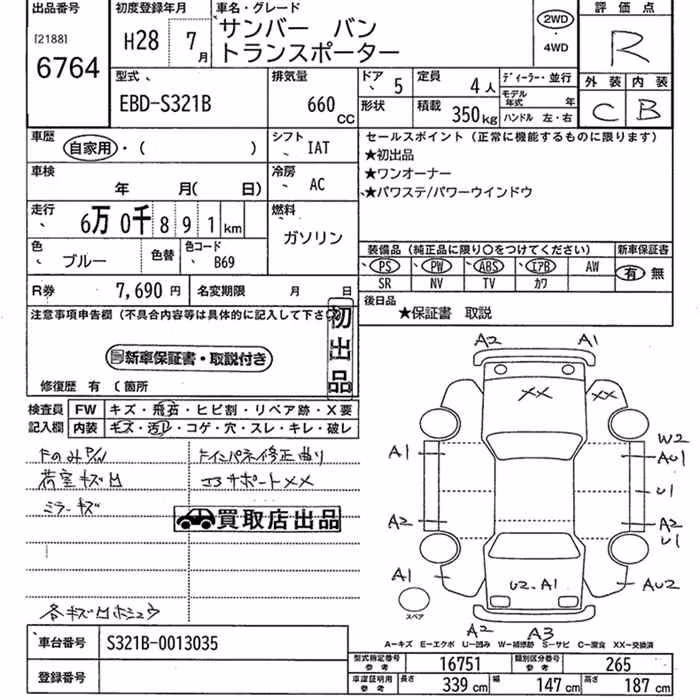 出品番号 初度登録年月 車名・グレード 評価点
[2188] 6764
H28 7月
サンバー バン
トランスポーター
2WD・4WD
R
型式 排気量 ドア 5 定員 4人 ディーラー・並行 外装 内装
EBD-S321B 660CC 形状 積載 350kg モデル年式 年 C B
ハンドル 左・右
車歴 シフト セールスポイント (正常に機能するものに限ります)
自家用・( ) IAT ★初出品
車検 冷房 ★ワンオーナー
年 月( 日) AC ★パワステ/パワーウインドウ
走行 燃料
6万0千891km ガソリン
色 色替 色コード 装備品 (純正品に限り○をつけてください) 新車保証書
ブルー B69 PS PW ABS エアB AW 有 無
SR NV TV カワ
R券 7,690円 名変期限 月 日 後日品
★保証書 取説
注意事項申告欄 (不具合内容等は具体的に記入して下さ
初出品
新車保証書・取説付き
修復歴 有 〔箇所
検査員 FW キズ・飛石・ヒビ割・リペア跡・X要
記入欄 内装 キズ・汚れ・コゲ・穴・スレ・キレ・破レ
FのみP/W FインパネF修正曲り
荷室キズ凹 コアサポートXX
ミラーキズ
買取店出品
各キズ凹ホシュウ
A2 A1
XX XX
W2
A1 AU1
U1
A2 A2
U1
A1 U2.A1 AU2
スペア
A2 A3
A-キズ E-エクボ U-凹み W-補修跡 S-サビ C-腐食 XX-交換済
車台番号 S321B-0013035
登録番号
型式指定番号 参考 16751 類別区分番号 参考 265
車庫証明用 参考 長さ 339cm 幅 147cm 高さ 187cm